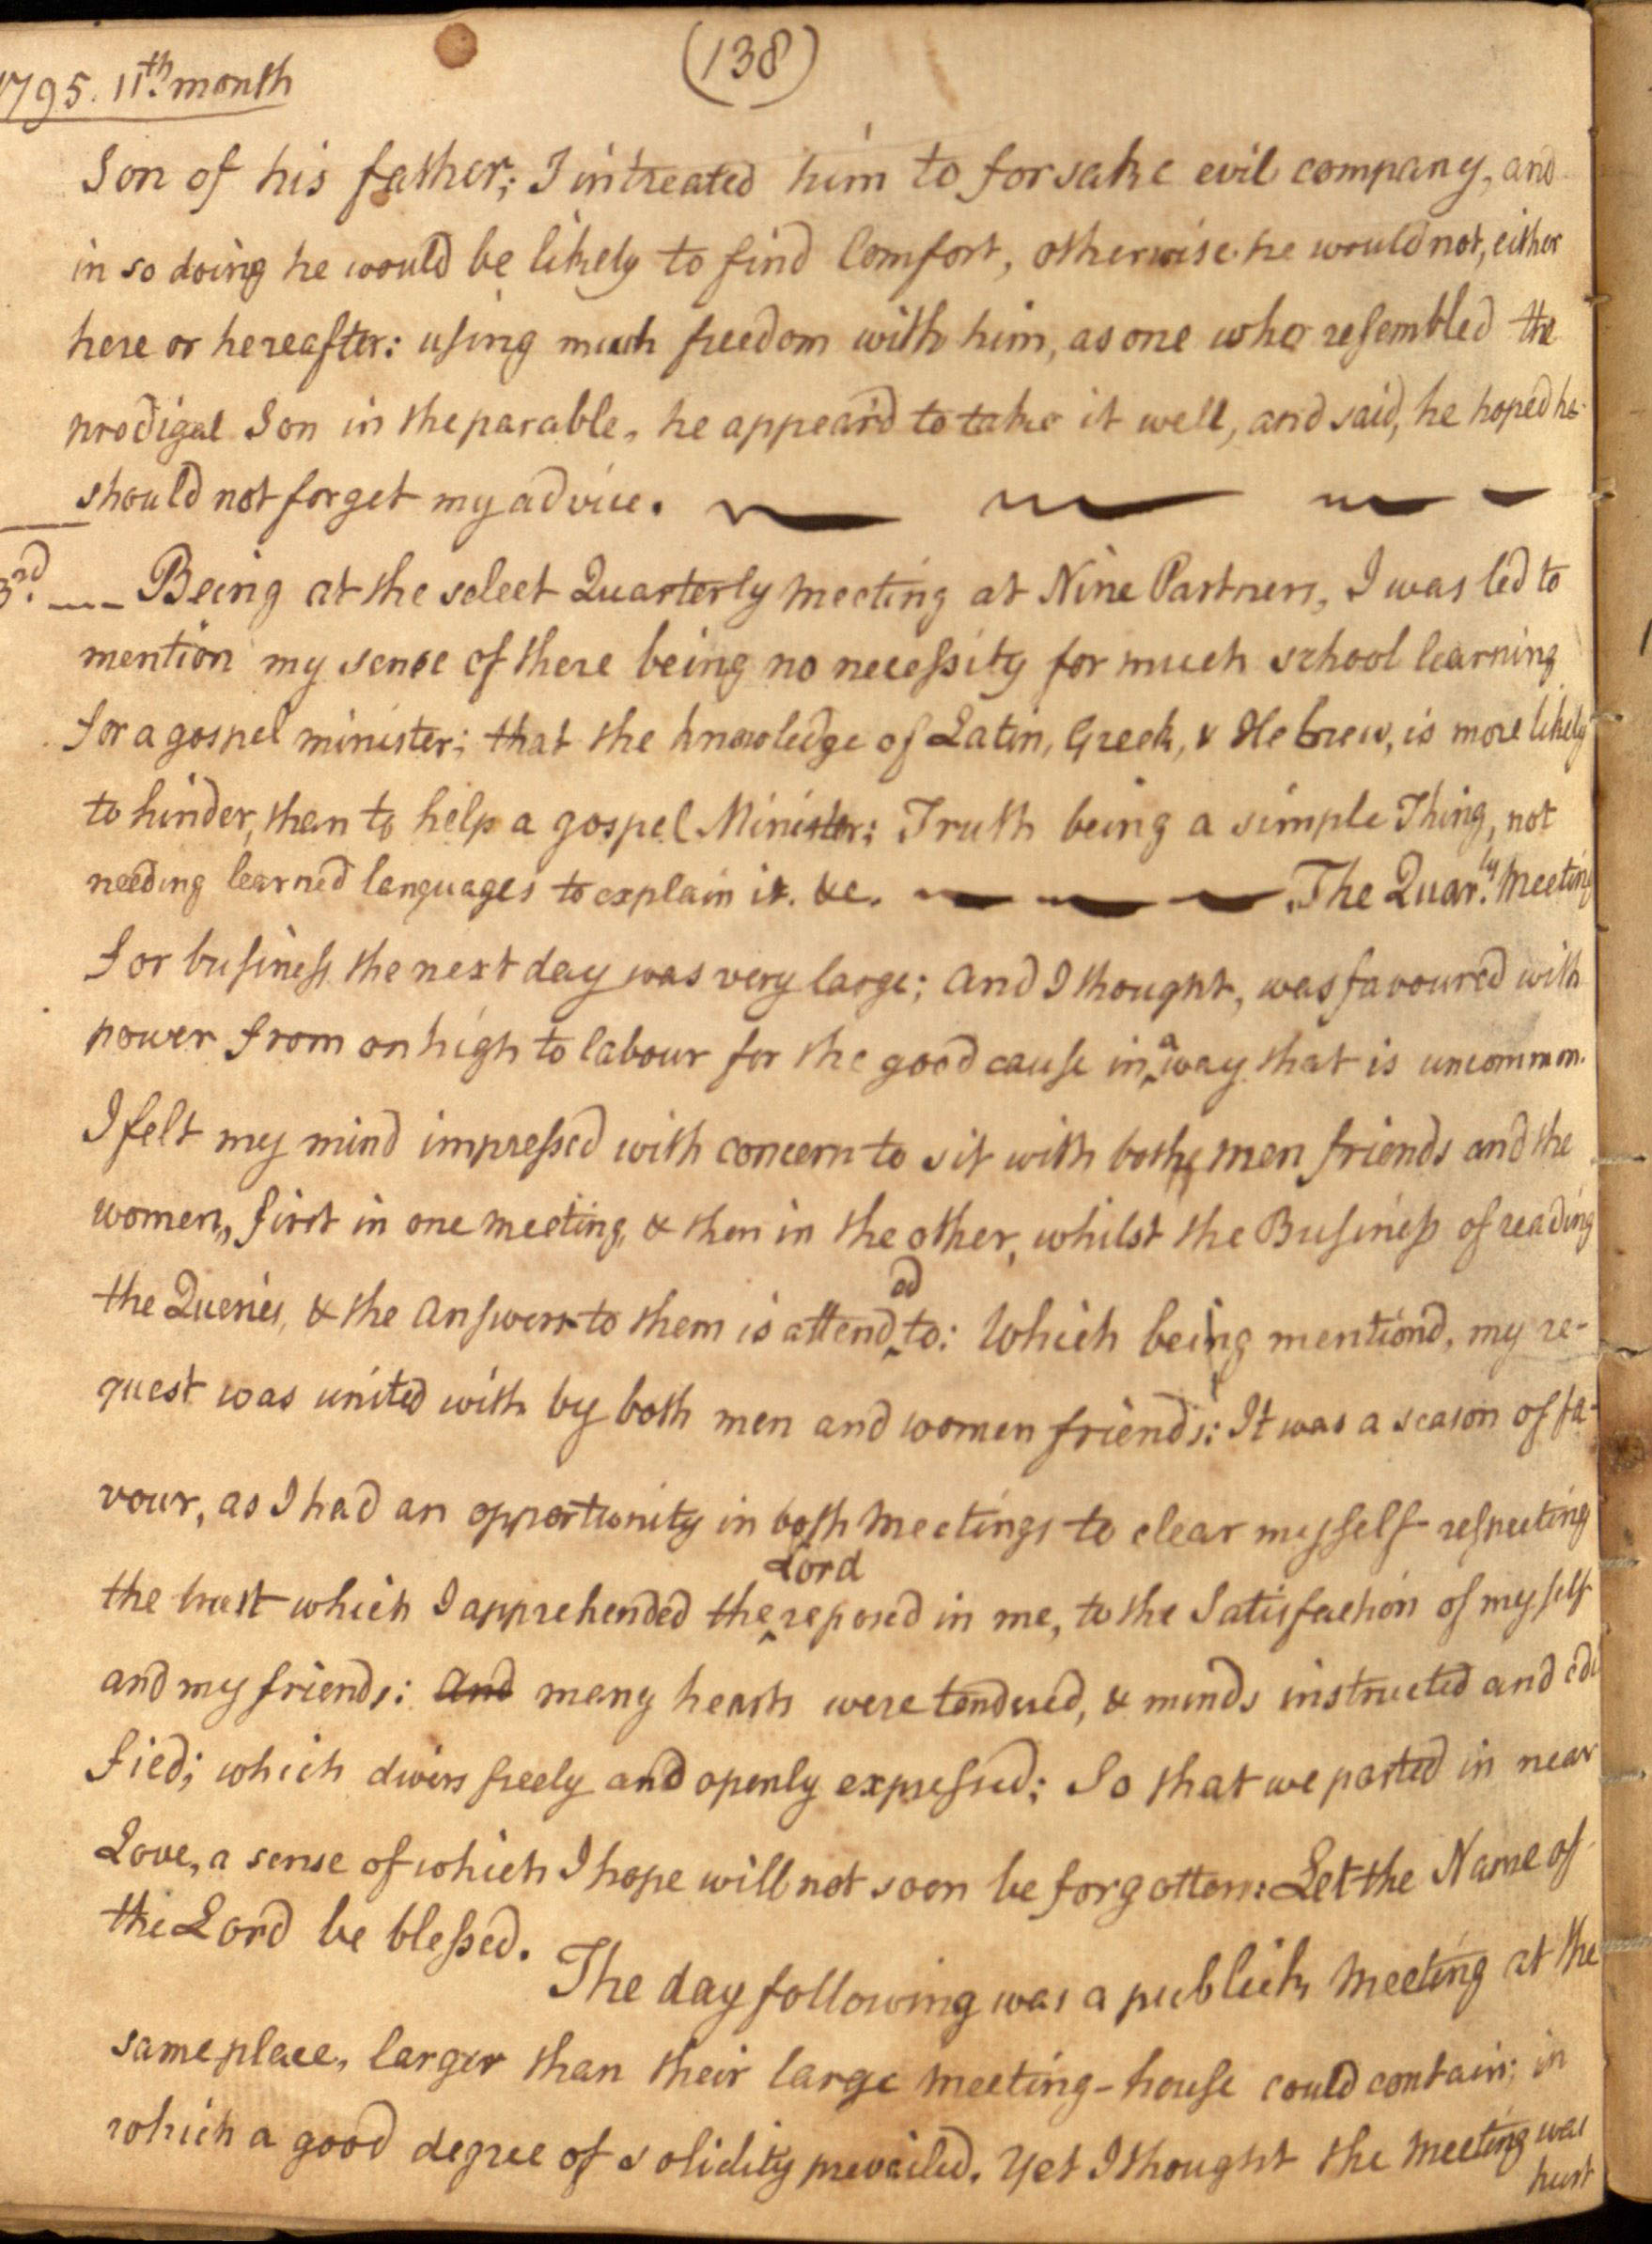 (138)
1795. 11th month
Son of his father; I intreated him to forsake evil company, and
in so doing he would be likely to find Comfort, otherwise he would not, either
here or hereafter: using much freedom with him, as one who resembled the
prodigal Son in the parable, he appear'd to take it well, and said, he hoped he
should not forget my advice.
3rd. Being at the select Quarterly meeting at Nine Partners, I was led to
mention my sense of there being no necessity for much school learning
for a gospel minister; that the knowledge of Latin, Greek, & Hebrew, is more likely
to hinder, than to help a gospel Minister: Truth being a simple Thing, not
needing learned languages to explain it. &c. The Quar.ly Meeting
for business the next day was very large; and I thought, was favoured with
power from on high to labour for the good cause in a way that is uncommon.
I felt my mind impressed with concern to sit with both men friends and the
women, first in one meeting, & then in the other, whilst the Business of reading
the Queries, & the Answers to them is attended to: Which being mention'd, my re-
quest was united with by both men and women friends: It was a season of fa-
vour, as I had an opportunity in both meetings to clear myself respecting
the trust which I apprehended the Lord reposed in me, to the Satisfaction of myself
and my friends: and many hearts were tendered, & minds instructed and edi
fied; which divers freely and openly expressed: So that we parted in near
Love, a sense of which I hope will not soon be forgotten: Let the Name of
the Lord be blessed.
The day following was a publick meeting at the
same place, larger than their large meeting-house could contain; in
which a good degree of solidity prevailed. Yet I thought the meeting was
hurt